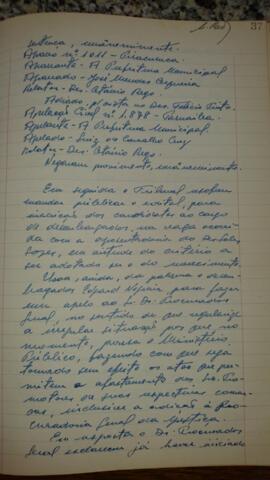 37
sentença, unanimemente.
Agravo nº 1011 - Piracuruca
Agravante - A Prefeitura Municipal
Agravado - José Mendes Cerqueira
Relator - Des. Otávio Rego.
Adiado, p/ vista ao Des.
Apelação Cível nº 1.878 - Parnaíba.
Apelante - A Prefeitura Municipal.
Apelado - Luiz de Carvalho Cruz
Relator - Des. Otávio Rego.
Negaram provimento, unanimemente.
Em seguida o Tribunal resolveu
mandar publicar o edital, para
inscrição dos candidatos ao cargo
de desembargador, na vaga ocorri-
da com a aposentadoria do
, na virtude do critério a
ser adotado ser o de merecimento.
Usou, ainda, da palavra o desem-
bargador Edgard Nogueira, para fazer
um apelo ao Sr. Dr. Procurador
Geral, no sentido de que regularize
a irregular situação por que, no
momento, passa o Ministério
Público, fazendo com que seja
tornados sem efeito os atos que per-
mitem o afastamento dos Srs. Pro-
motores de suas respectivas comar-
cas, inclusive a adição à Pro-
curadoria Geral da Justiça.
Em resposta o Dr. Procurador
Geral esclareceu já haver iniciado